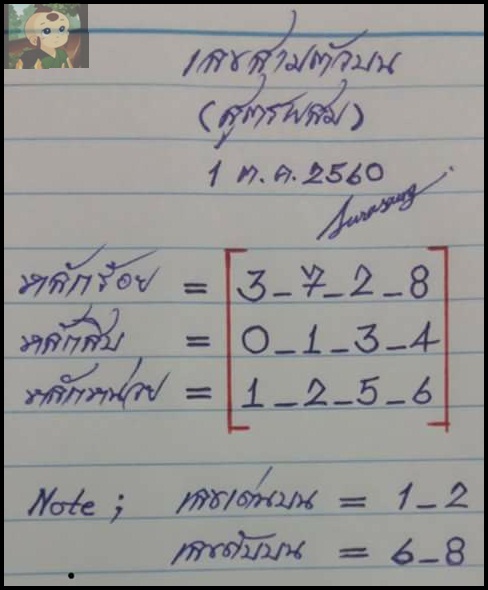 เลขสามตัวบน
(สูตรผสม)
1 ต.ค. 2560
หลักร้อย = 3_7_2_8
หลักสิบ = 0_1_3_4
หลักหน่วย = 1_2_5_6
Note ; เลขเด่นบน = 1_2
เลขดับบน = 6_8